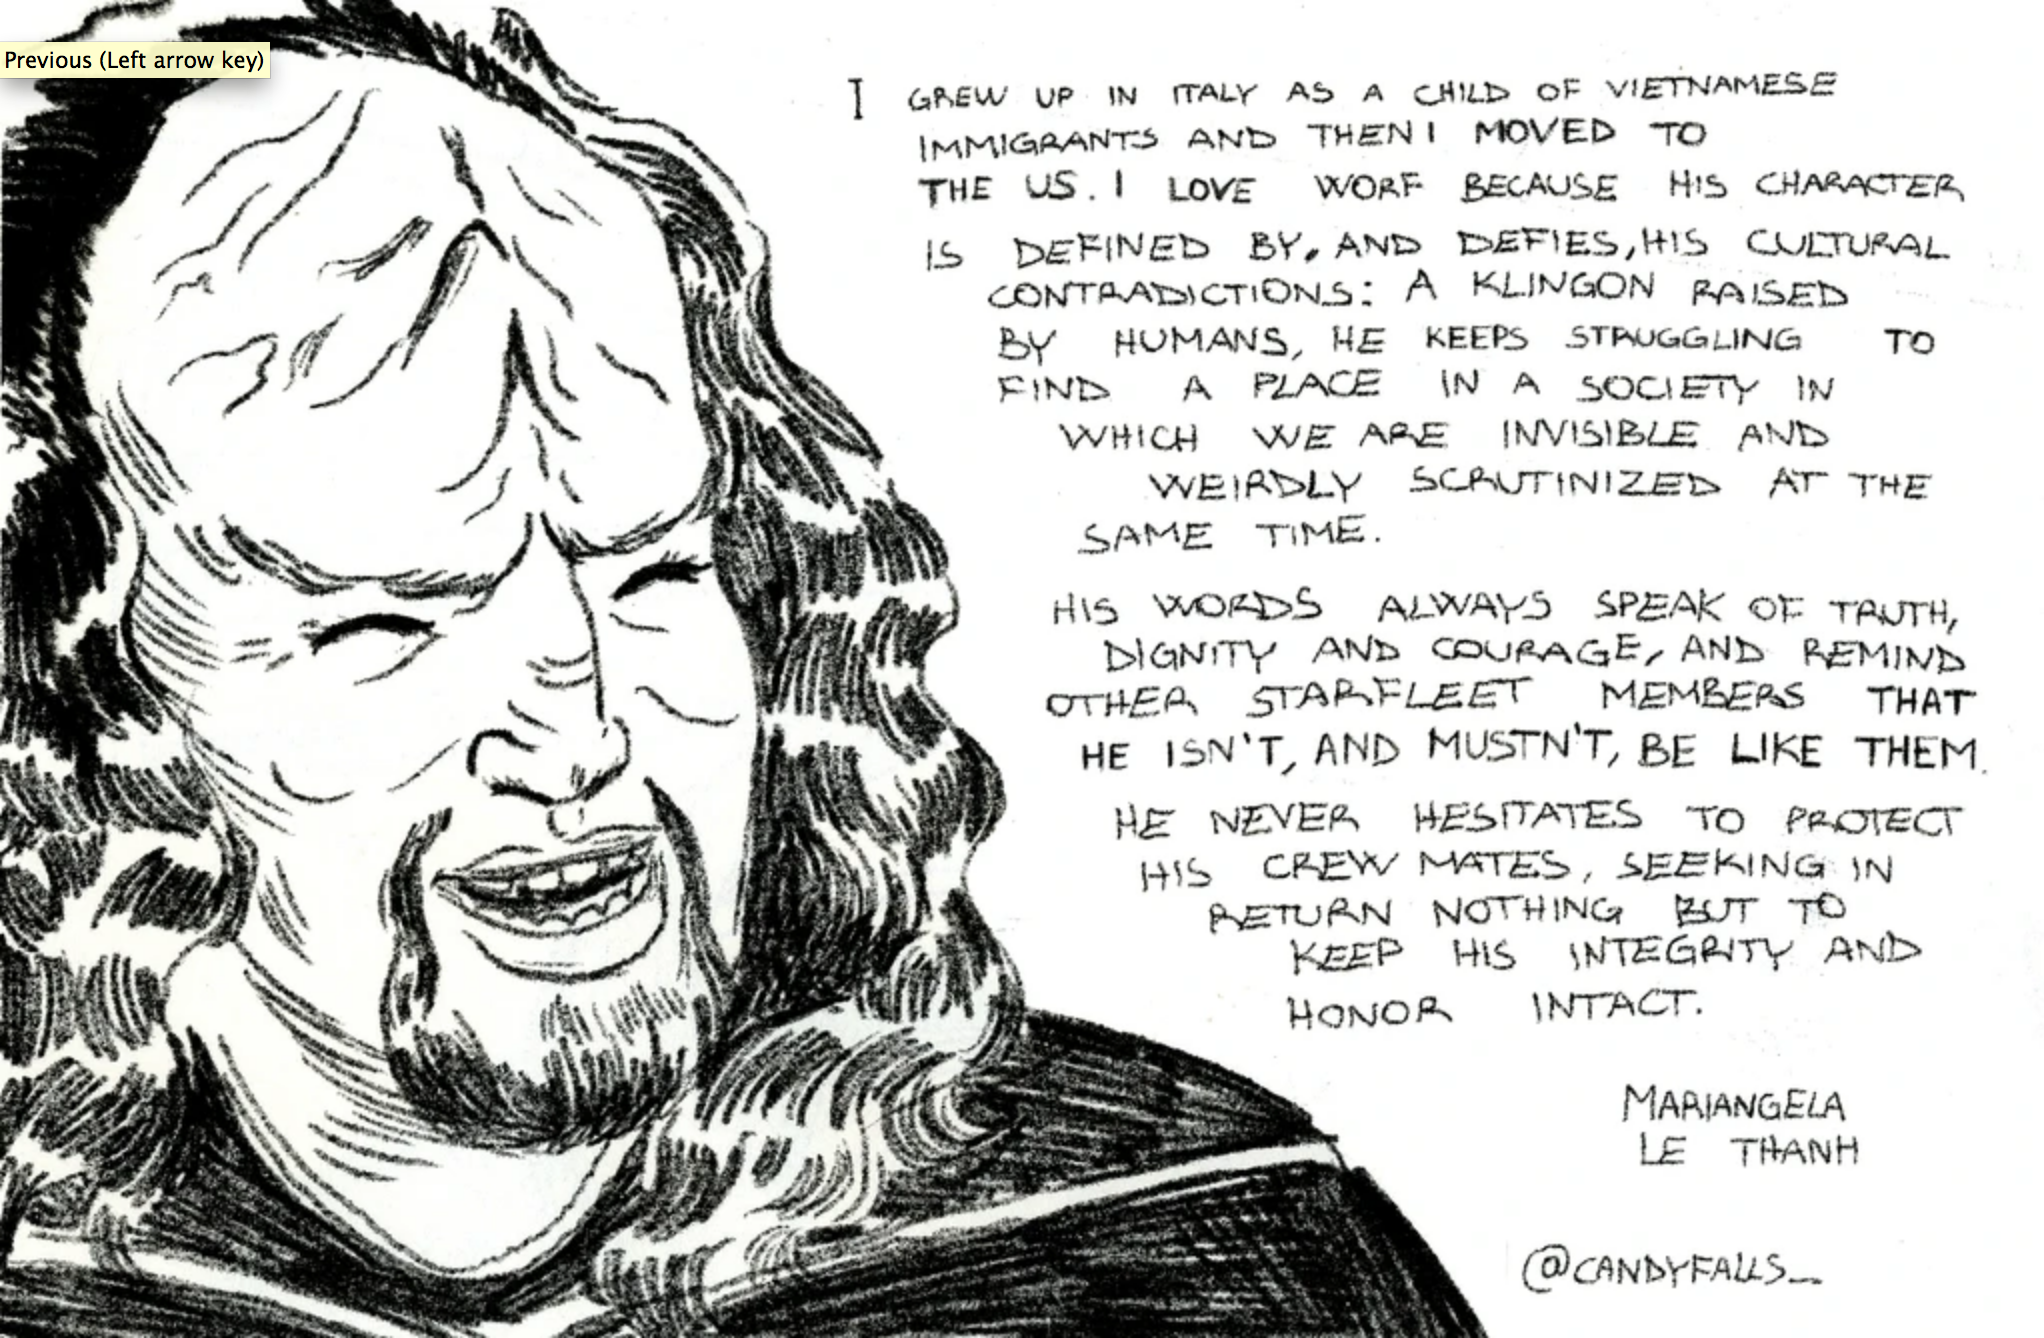 Previous (Left arrow key)
I GREW UP IN ITALY AS A CHILD OF VIETNAMESE
IMMIGRANTS AND THEN I MOVED TO
THE US. I LOVE WORF BECAUSE HIS CHARACTER
IS DEFINED BY, AND DEFIES, HIS CULTURAL
CONTRADICTIONS: A KLINGON RAISED
BY HUMANS, HE KEEPS STRUGGLING TO
FIND A PLACE IN A SOCIETY IN
WHICH WE ARE INVISIBLE AND
WEIRDLY SCRUTINIZED AT THE
SAME TIME.
HIS WORDS ALWAYS SPEAK OF TRUTH,
DIGNITY AND COURAGE, AND REMIND
OTHER STARFLEET MEMBERS THAT
HE ISN'T, AND MUSTN'T, BE LIKE THEM.
HE NEVER HESITATES TO PROTECT
HIS CREW MATES, SEEKING IN
RETURN NOTHING BUT TO
KEEP HIS INTEGRITY AND
HONOR INTACT.
MARIANGELA
LE THANH
@CANDYFALLS_